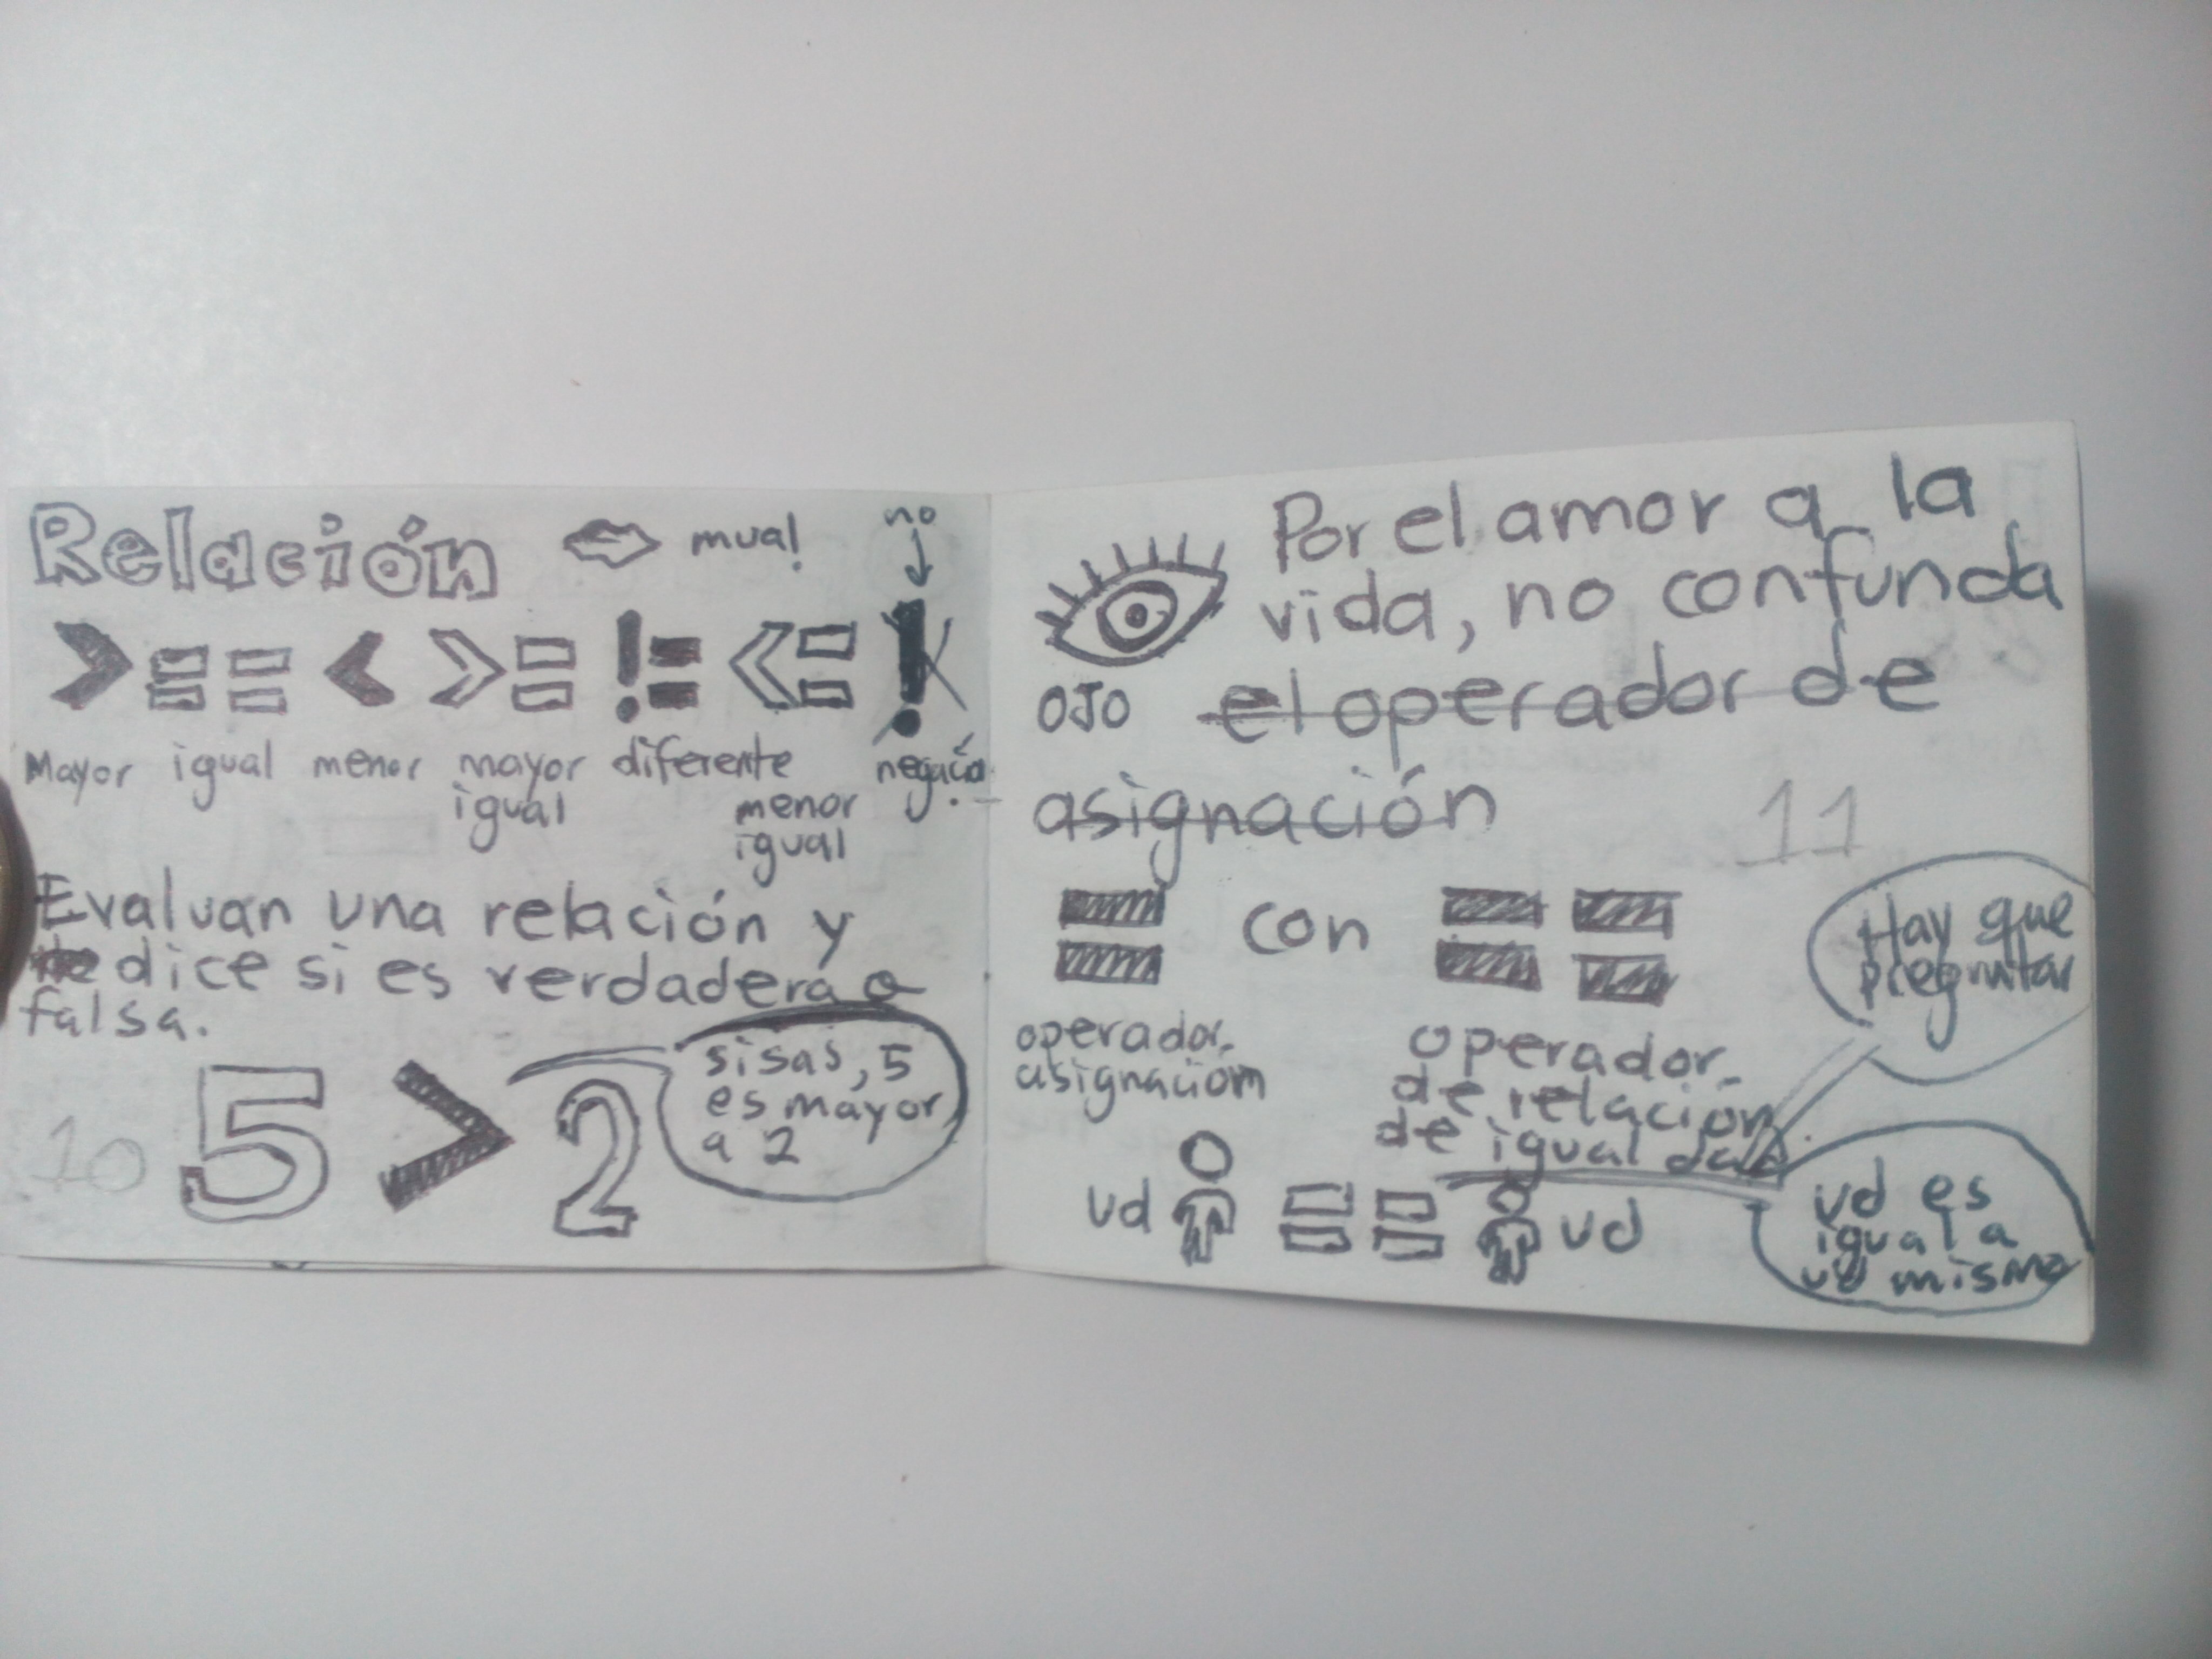 Relación mua!
no
> == < >= != <= !
Mayor igual menor mayor igual diferente menor igual negació
Evaluan una relación y
dice si es verdadera o
falsa.
5 > 2
sisas, 5
es mayor
a 2
10
Por el amor a la
vida, no confunda
OJO el operador de
asignación
11
= con ==
operador
asignaciom
operador
de relación
de igualdad
Hay que
ud == ud
ud es
igual a
ud mismo